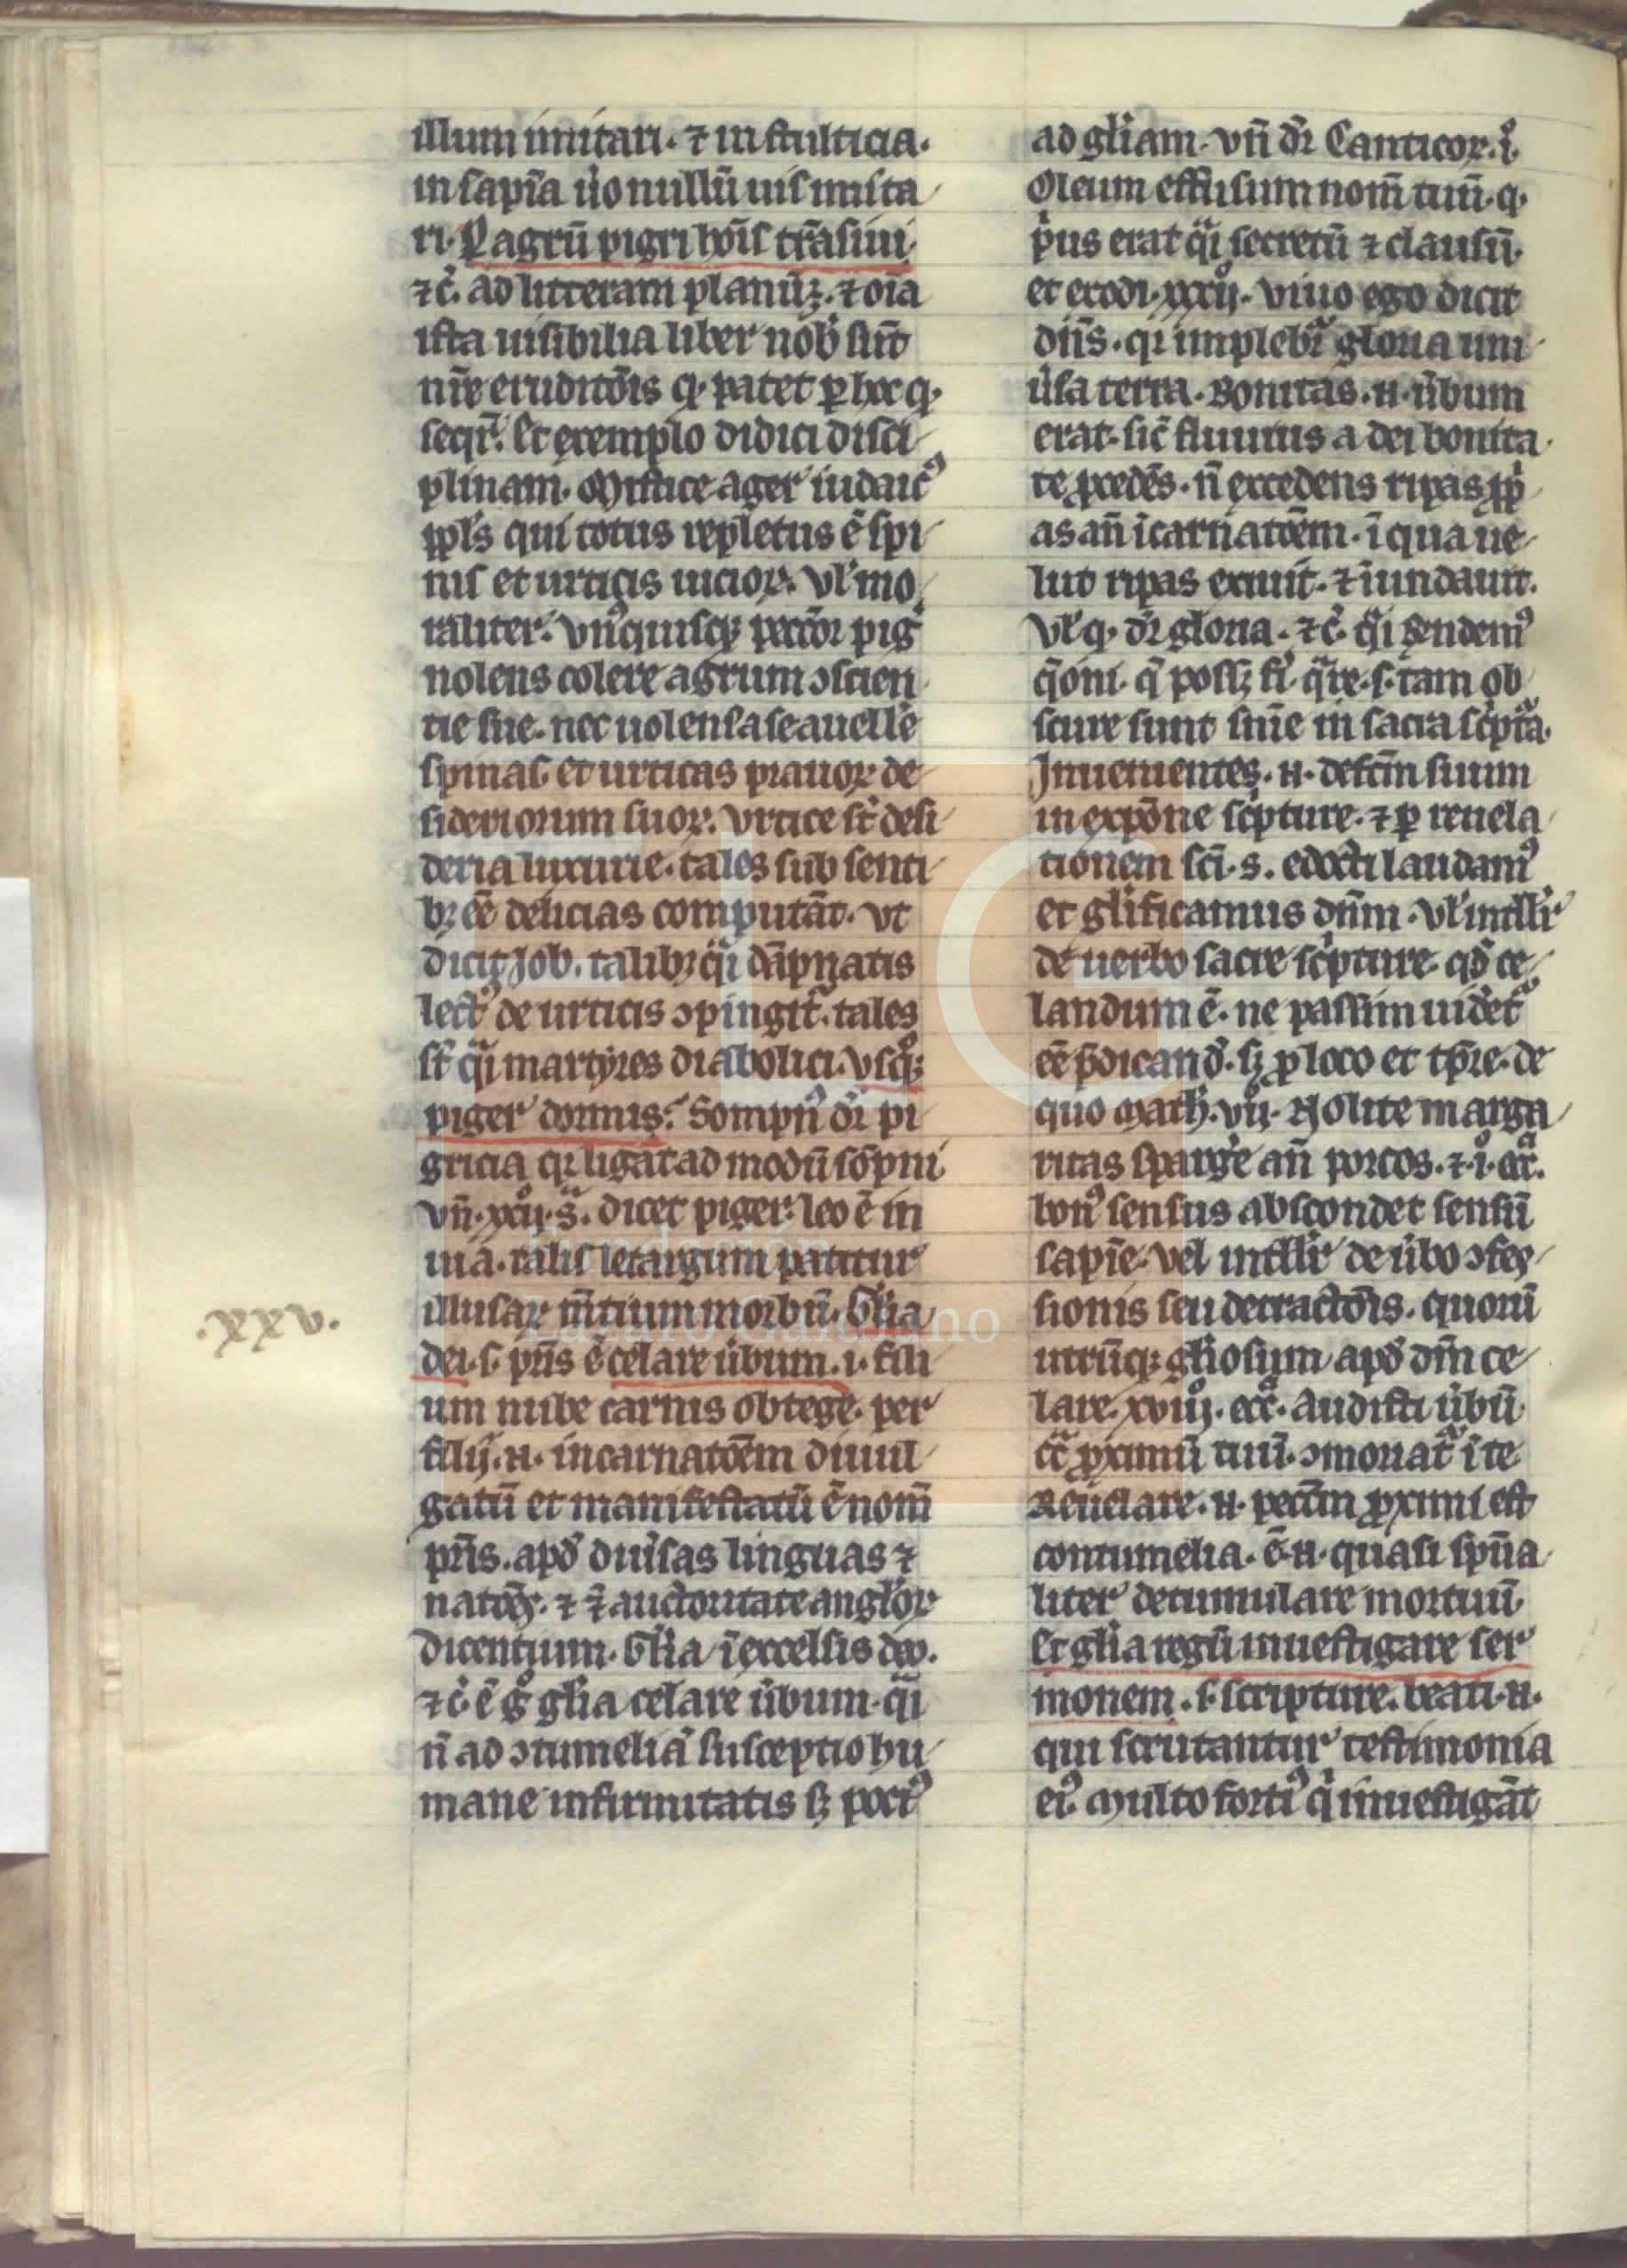 illum imitari. ⁊ in stulticia.
in sapīa ůo nullū uis imita
ri. Ꝑ agrū pigri hoīs trāsiui
⁊c̄. ad litteram planūꝫ. ⁊ oīa
ista uisibilia liber nob̄ sūt
nr̄e eruditōis q̇ patet ꝑ hoc q̇
seqr̄. Et exemplo didici disci
plinam. Mistice ager iudaicꝰ
ppl̄s qui totus repletus ē spi
nis et urticis uicioꝝ. Vl̄ mo
raliter. vnꝰquisqꝫ pecc̄or pigˀ
nolens colere agrum ꝯscien
tie sue. nec uolens a se auellē
spinas et urticas prauoꝝ de
sideriorum suoꝝ. Vrtice st̄ desi
deria luxurie. tales sub senti
bꝫ eē delicias computāt. vt
dicit Job. talibꝫ q̄i dāpnatis
lectꝰ de urticis ꝯpingit̄. tales
st̄ q̄i martyres diaboli ci. Vsqꝫ
piger dormis. Sompnꝰ dr̄ pi
gricia qꝛ ligat ad modū sōpni
vn̄. xxij. s̄. dicet piger. leo ē in
uia. talis letargum patitur
illusaꝝ m̄tium morbū. Gl̄ia
.xxv.
dei. s. pr̄is ē celare ůbum. i. fili
um nube carnis obtegē. per
filij. n. incarnatōem diuul
gatū et manifestatū ē nom̄
pr̄is. apd̓ diuˀsas linguas ⁊
natōes. ⁊ auctoritate angl̓oꝝ
dicentium. Gl̄ia ī excelsis deo.
⁊c̄ ē gͦ gl̄ia celare ůbum. q̄i
n̄ ad ꝯtumeliā susceptio hu
mane infirmitatis sꝫ pociꝰ
ad gl̄iam. vn̄ dr̄ Canticoꝝ. i.
Oleum effusum nom̄ tuū. q̇
pͥus erat q̄i secretū ⁊ clausū.
et exodi. xxxij. viuo ego dicit
dn̄s. qꝛ implebit̄ gloria uni
uˀsa terra. Bonitas. n. ůbum
erat. sic̄ fluuius a dei bonita
te ꝓcedēs. n̄ excedens ripas ꝓpͥ
as an̄ īcarnatōem. ī qua ue
lud ripas exiuit. ⁊ īundauit.
Vl̄ q̇ dr̄ gloria. ⁊c̄. q̄i r̄ndemꝰ
q̄oni. q̄ possꝫ fiˀ. q̄re. s. tam ob
scure sunt sn̄ie in sacra scͥptͣa.
Inuenientes. n. defc̄m suum
in expōne scͥpture. ⁊ ꝑ reuela
tionem sc̄i. s. edocti laudamꝰ
et gl̄ificamus dn̄m. Vl̄ intˀlliˀ
de uerbo sacre scͥpture. qd̓ ce
landum ē. ne passim uidetˀ
eē p̄dicand̓. sꝫ ꝓ loco et tp̄re. de
quo Math̄. vij. Nolite marga
ritas spargˀe an̄ porcos. ⁊. i. ecͣc.
bonꝰ sensus abscondet sensū
sapīe. Vel intˀlliˀ de ůbo ꝯfes
sionis seu detractōis. quoniā
utrūqꝫ gl̄iosum apd̓ dm̄ ce
lare. xviiij. ecͣc. Audisti ůbū.
cͣ ꝓximū tuū. ꝯmoriatˀ ī te
Reuelare. n. pecc̄m ꝓximi est
contumelia. ē. n. quasi spn̄a
liter detumulare mortuū.
Et gl̄ia regū inuestigare ser
monem. s. scripture. beati. n.
qui scrutantur testimonia
eiꝰ. Multo fortiꝰ qͥ inuestigāt